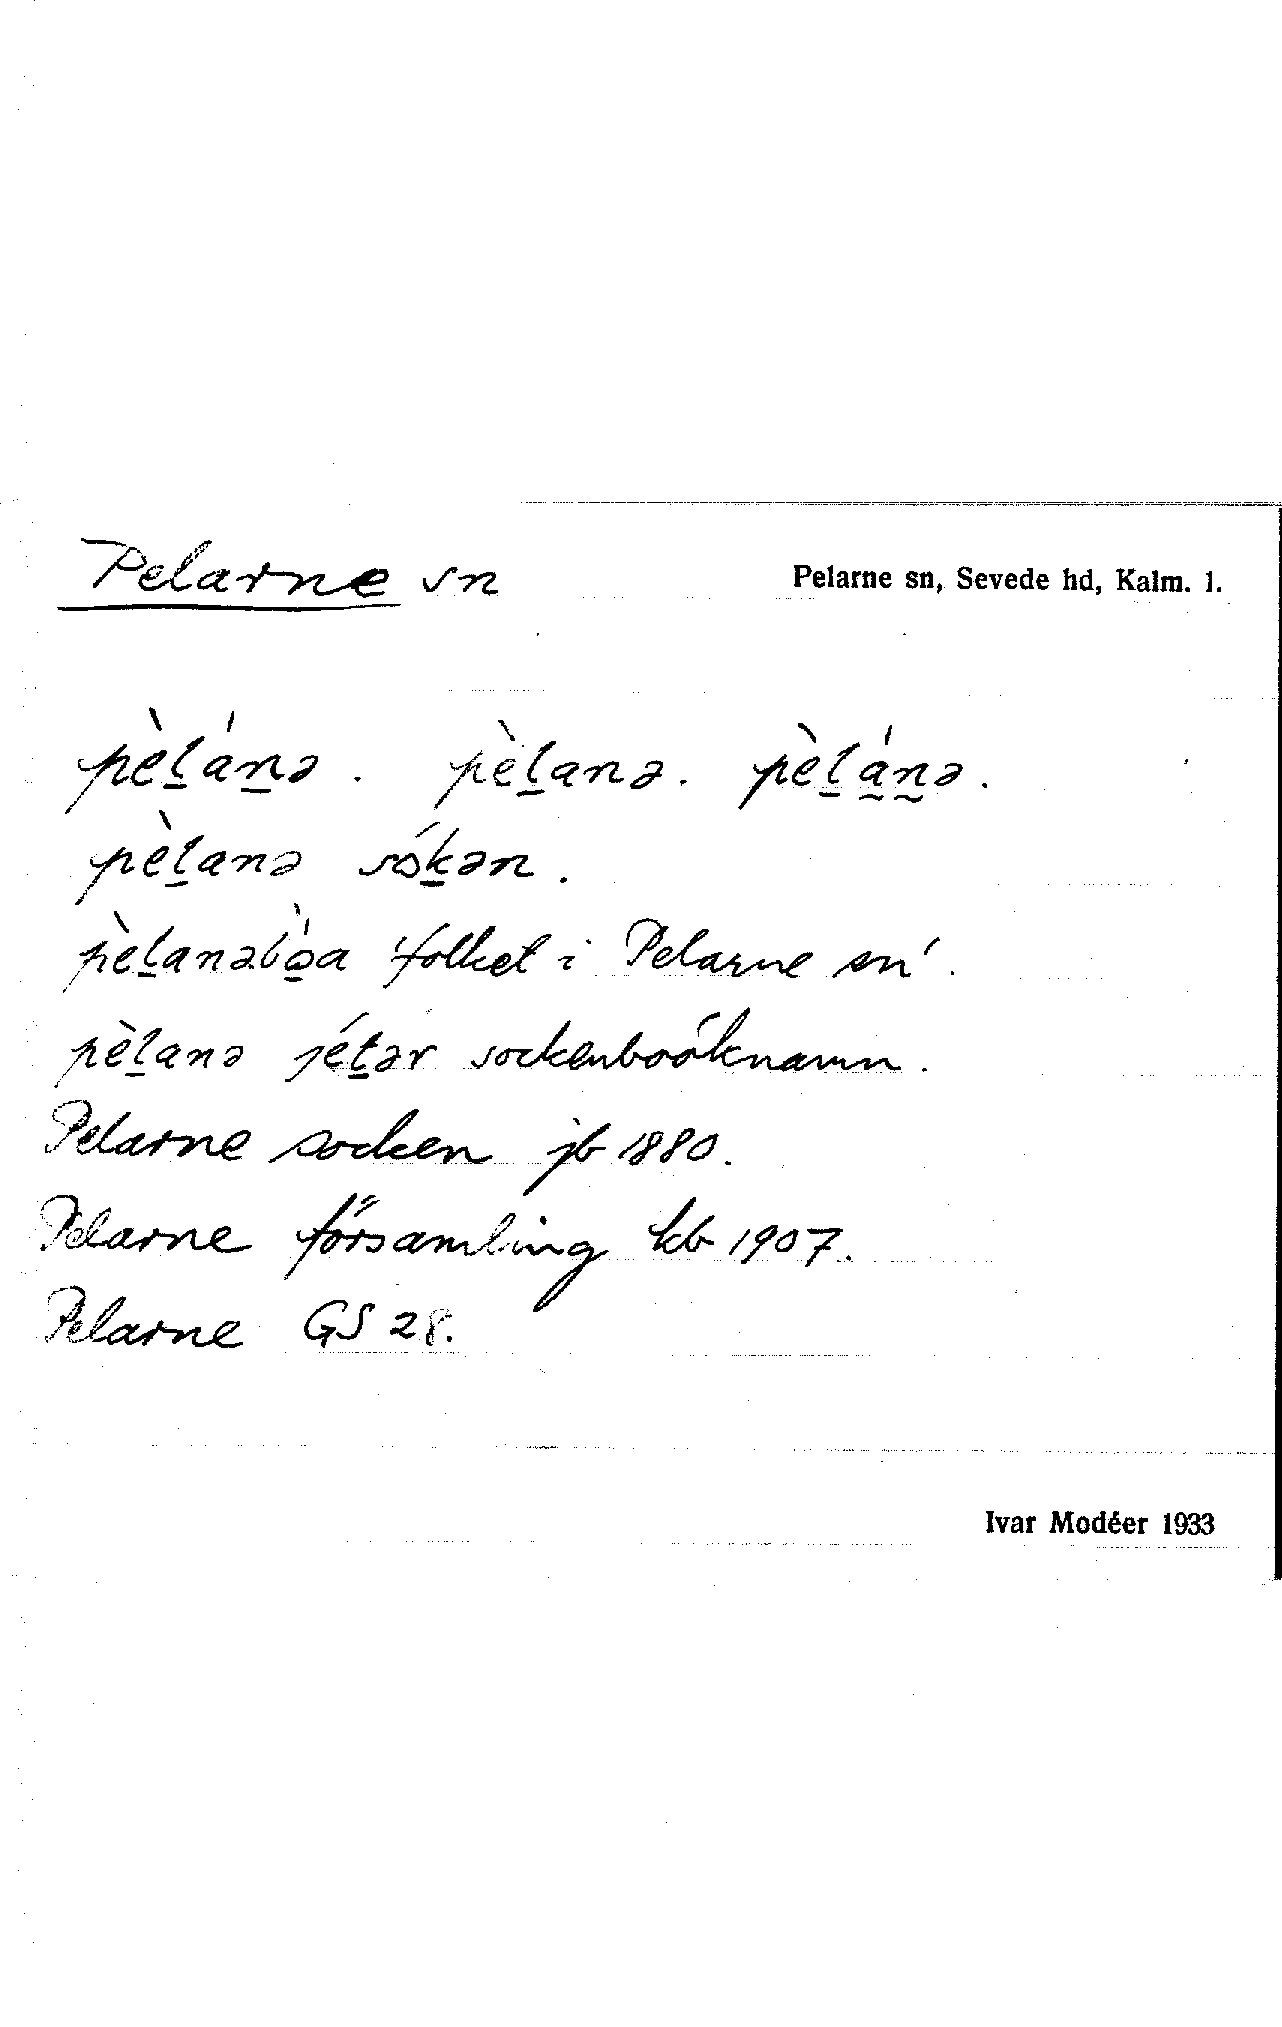 Pelarne sn
Pelarne sn, Sevede hd, Kalm. l.
pèl̲án̲ə. pèl̲anə. pèl̲á̰n̰ə.
pèl̲anə sók̲ən.
pèl̲anəbo̲a 'folket i Pelarne sn'.
pèl̲anə jét̲ər sockenboöknamn.
Pelarne socken jb 1880.
Pelarne församling kb 1907.
Pelarne GS 28.
Ivar Modéer 1933